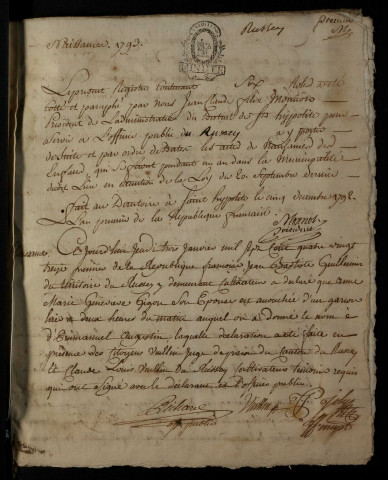 Naissances 1793.
Russey
premier
Le present Registre Contenant Six Rolles a été
cotté et paraphé par nous Jean Claude
President de L'administration du District de St hypolite pour
servir à L'officier public du Russey a y porter
de suite et par ordre de datte les actes de Naissances des
Enfans qui se feront pendant un an dans la Municipalité
dudit Lieu en Execution de la Loy du 20 Septembre dernier
Fait au Directoire a Saint hypolite le cinq decembre 1792.
L'an premier de la Republique francaise
president
Ce Jourdhui Jeudi trois Janvier mil Sept Cent quatre vingt
treize premier de la Republique francoise Jean Baptiste Guillaume
du territoire du Russey y demeurant Cultivateur a declaré que anne
Marie Genevieve Gigon Son Epouse est accouchée d'un garcon
hier a deux heures du matin auquel on a donné le nom
d'Emmanuel Augustin laquelle declaration a été faite en
presence des Citoyens Vuillin Juge de paix du Canton du Russey
Et Claude Louis Vuillin du Russey Cultivateur temoins requis
qui ont signé avec le declarant et l'officier public
off public